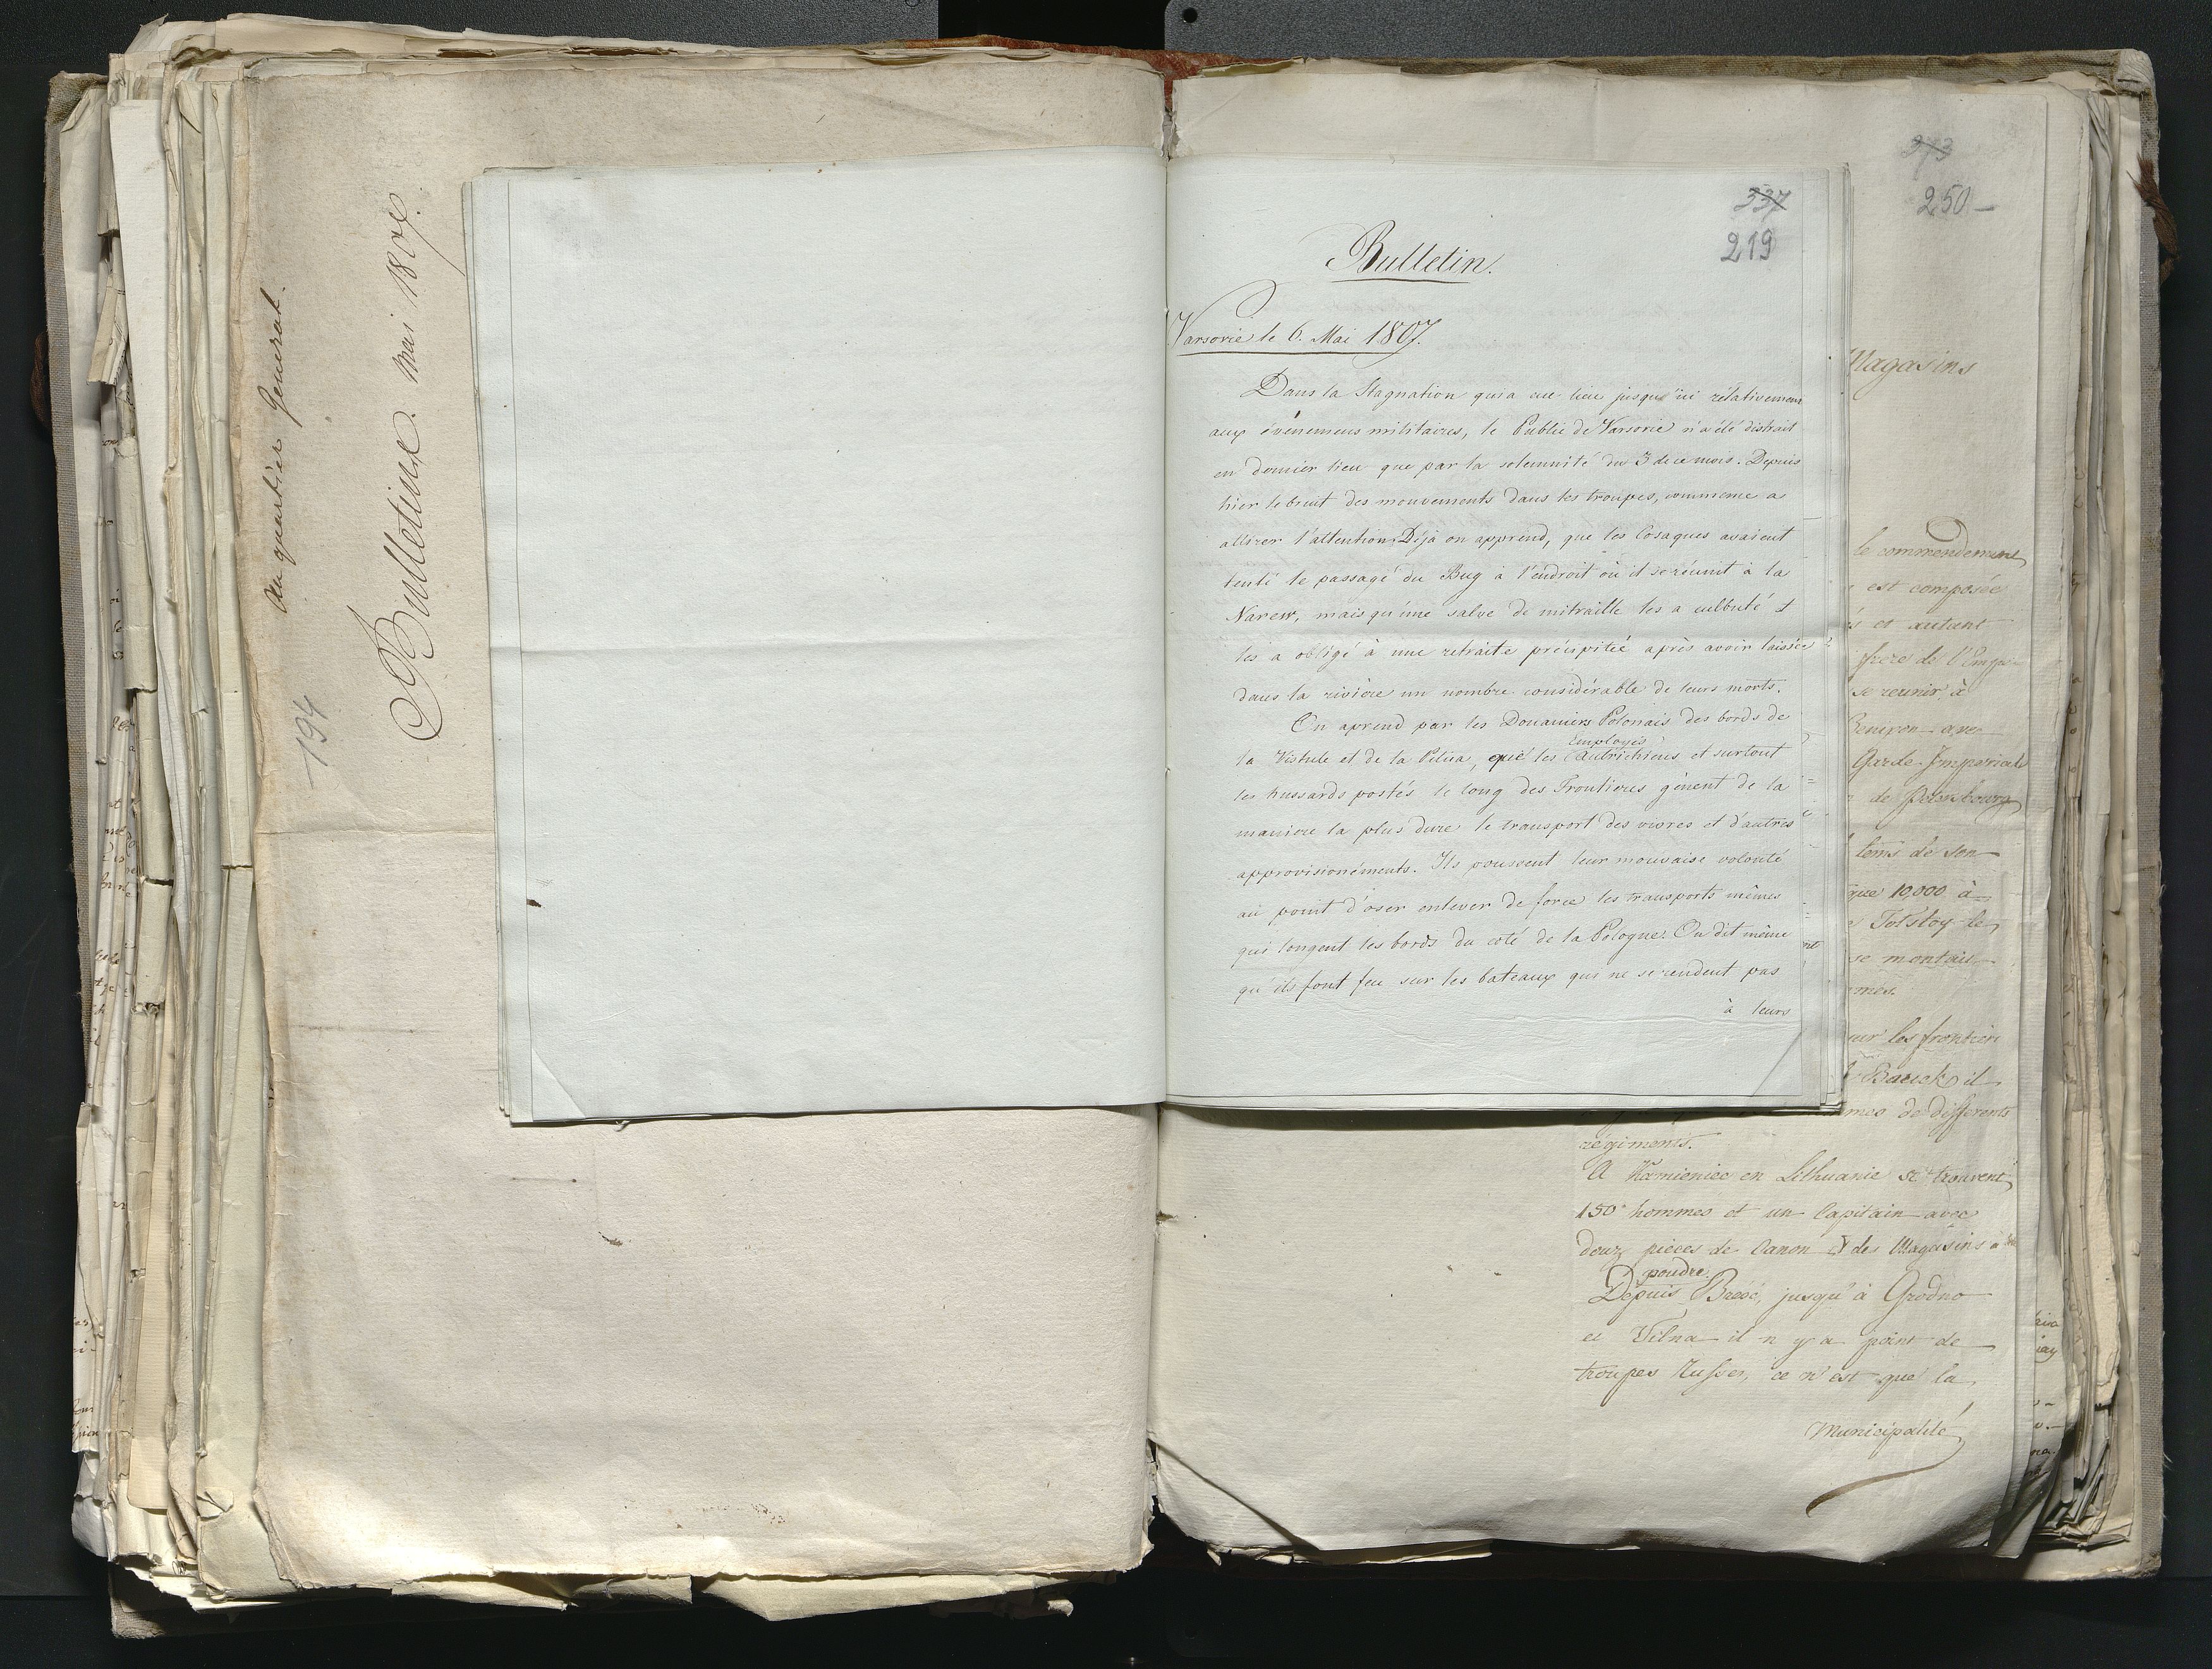 au quartier General.
Bulletins. Mai 1807.
194
337
219
Bulletin.
Varsovie le 6. Mai 1807.
Dans la Stagnation qui a eue lieu jusqu'ici rélativement
aux évènemens militaires, le Public de Varsovie n'a été distrait
en dernier lieu que par la solemnité du 3 de ce mois. Depuis
hier le bruit des mouvements dans les troupes, commence a
attirer l'attention. Déjà on apprend, que les Cosaques avaient
tenté le passage du Bug à l'endroit où il se réunit à la
Narew, mais qu'une salve de mitraille les a culbuté et
les a obligé à une retraite précipitée après avoir laissée
dans la rivière un nombre considérable de leurs morts.
On aprend par les Douaniers Polonais des bords de
la Vistule et de la Pilica, que les Employés Autrichiens et surtout
les hussards postés le long des Frontieres génent de la
maniere la plus dure le transport des vivres et d'autres
approvisionéments. Ils poussent leur mauvaise volonté
au point d'oser enlever de force les transports mêmes
qui longent les bords du coté de la Pologne. On dit même
qu'ils font feu sur les bateaux qui ne se rendent pas
à leurs
273
250
Magasins
le commendement
est composée
et autant
frere de l'Emp
se reunir à
Garde Imperiale
de Petersbourg
tems de son
que 10,000 à
Tolstoy le
se montait
mes.
sur les frontier
il
mes de differents
régiments.
A Kamieniec en Lithuanie se trouvent
150 hommes et un Capitain avec
douz pieces de Canon et des Magasins a
poudre.
Depuis Bresc, jusqu'à Grodno
et Vilna il n'y a point de
troupes Russes, ce n'est que la
Municipalité